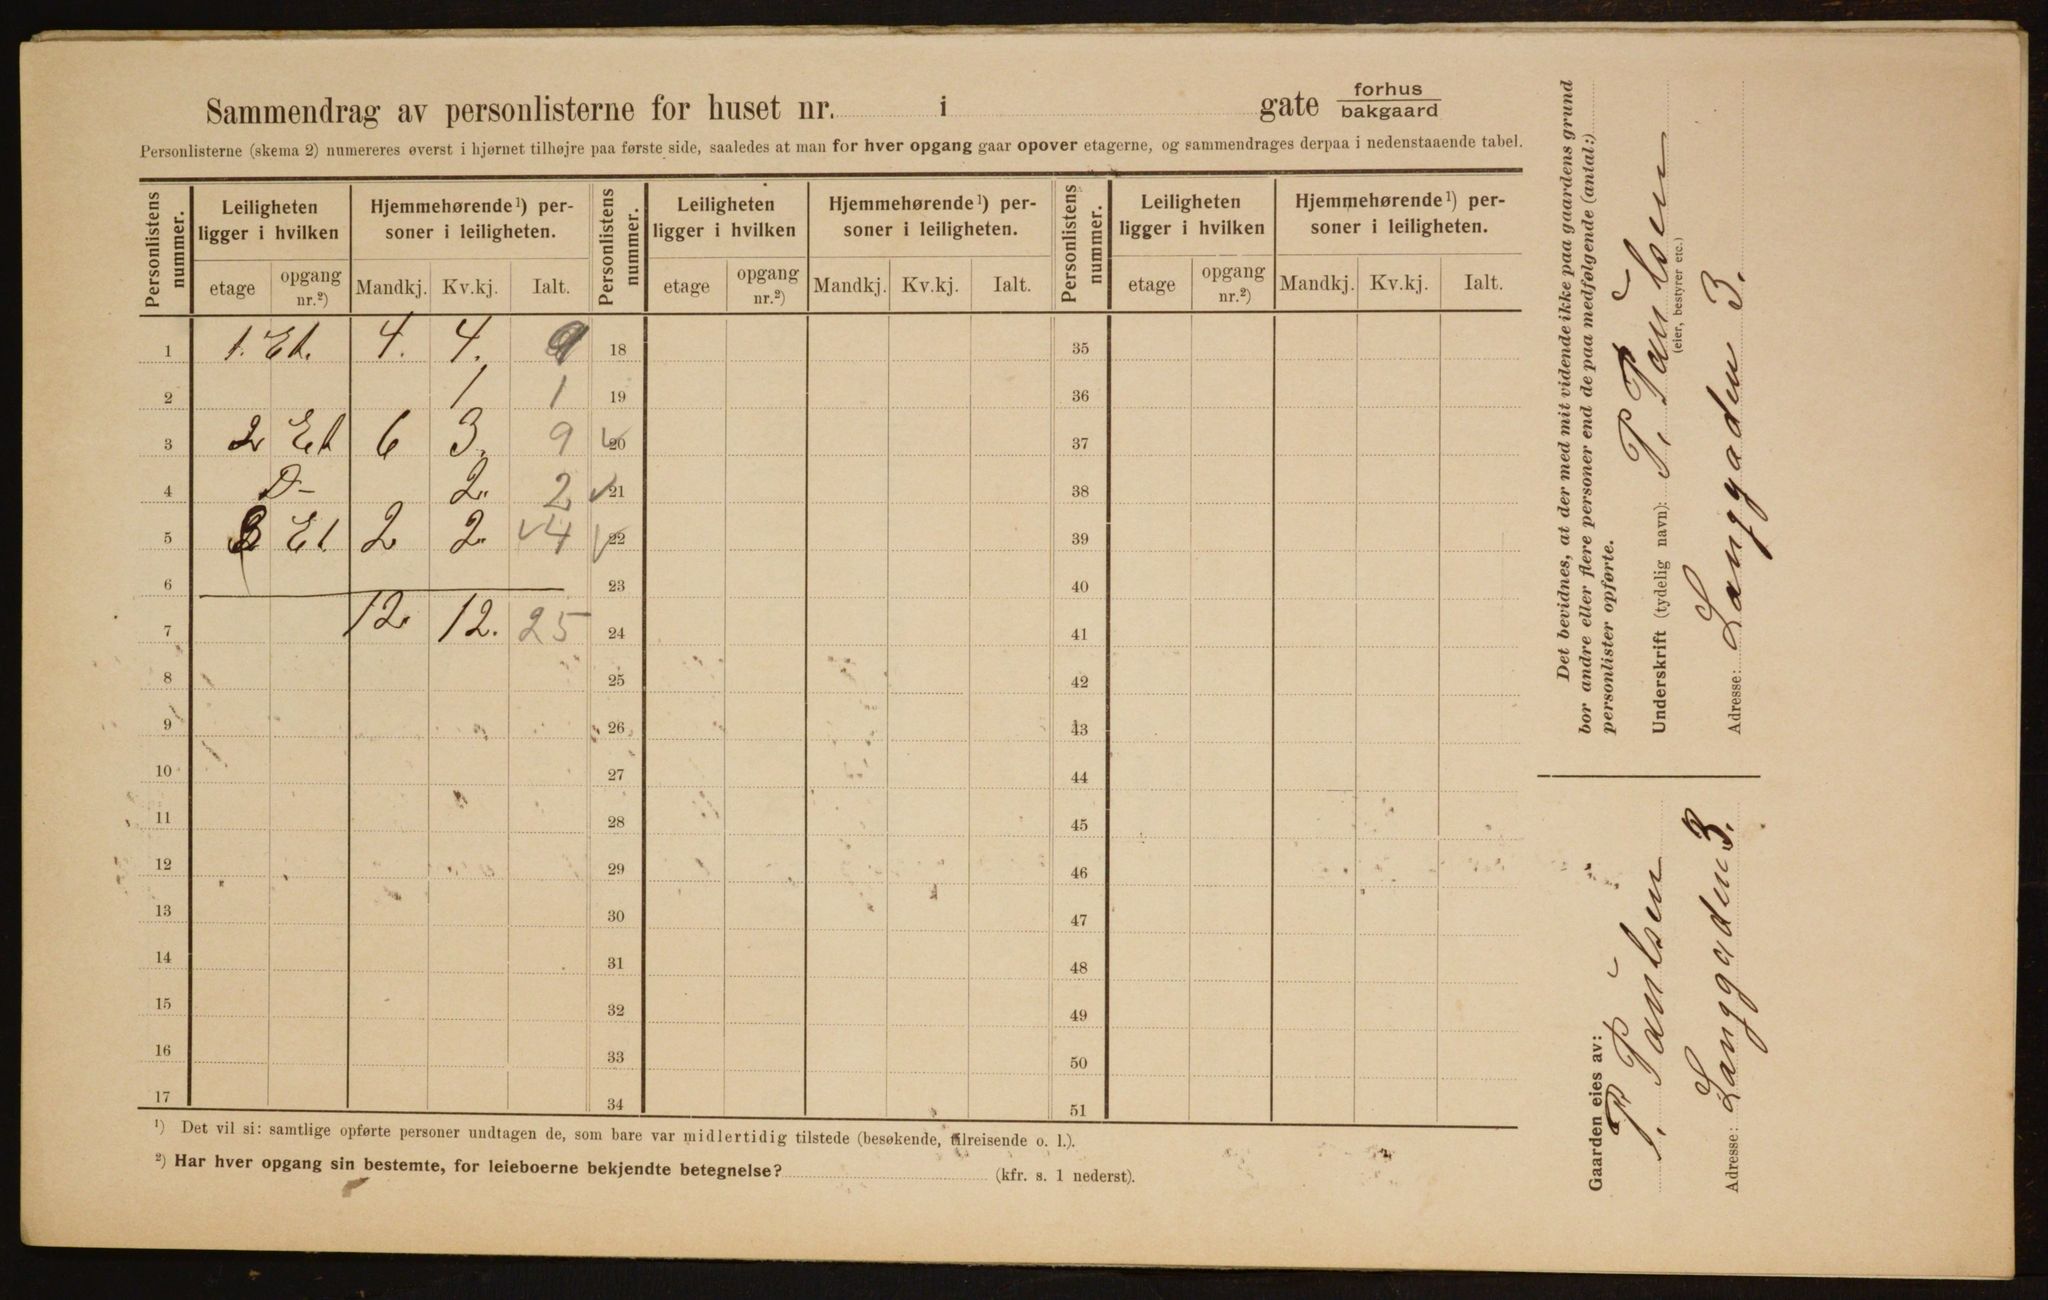 Sammendrag av personlisterne for huset nr. i gate forhus
bakgaard
Personlisterne (skema 2) numereres øverst i hjørnet tilhøjre paa første side, saaledes at man for hver opgang gaar opover etagerne, og sammendrages derpaa i nedenstaaende tabel.
Personlistens nummer. Leiligheten ligger i hvilken Hjemmehørende ¹) personer i leiligheten. Personlistens nummer. Leiligheten ligger i hvilken Hjemmehørende ¹) personer i leiligheten. Personlistens nummer. Leiligheten ligger i hvilken Hjemmehørende ¹) personer i leiligheten.
etage opgang nr.²) Mandkj. Kv.kj. Ialt. etage opgang nr.²) Mandkj. Kv.kj. Ialt. etage opgang nr.²) Mandkj. Kv.kj. Ialt.
1 1. Et. 4. 4. 18 35
2 1 1 19 36
3 2 Et 6 3. 9 20 37
4 D- 2. 2 21 38
5 3 Et. 2 2. 4 22 39
6 23 40
7 12. 12. 25 24 41
8 25 42
9 26 43
10 27 44
11 28 45
12 29 46
13 30 47
14 31 48
15 32 49
16 33 50
17 34 51
¹) Det vil si: samtlige opførte personer undtagen de, som bare var midlertidig tilstede (besøkende, tilreisende o. l.).
²) Har hver opgang sin bestemte, for leieboerne bekjendte betegnelse? (kfr. s. 1 nederst).
Det bevidnes, at der med mit vidende ikke paa gaardens grund
bor andre eller flere personer end de paa medfølgende (antal:)
personlister opførte.
Underskrift (tydelig navn): P. Paulsen
(eier, bestyrer etc.)
Adresse: Langgaden 3.
Gaarden eies av:
P. Paulsen
Adresse: Langgaden 3.